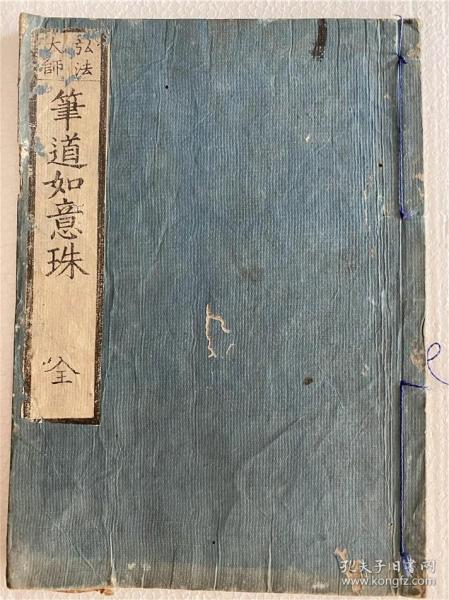 弘法
大師
筆道如意珠
全
孔夫子旧书网
www.kongfz.com